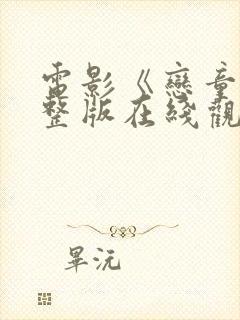 電影《戀童
整版在綫觀
畢沅